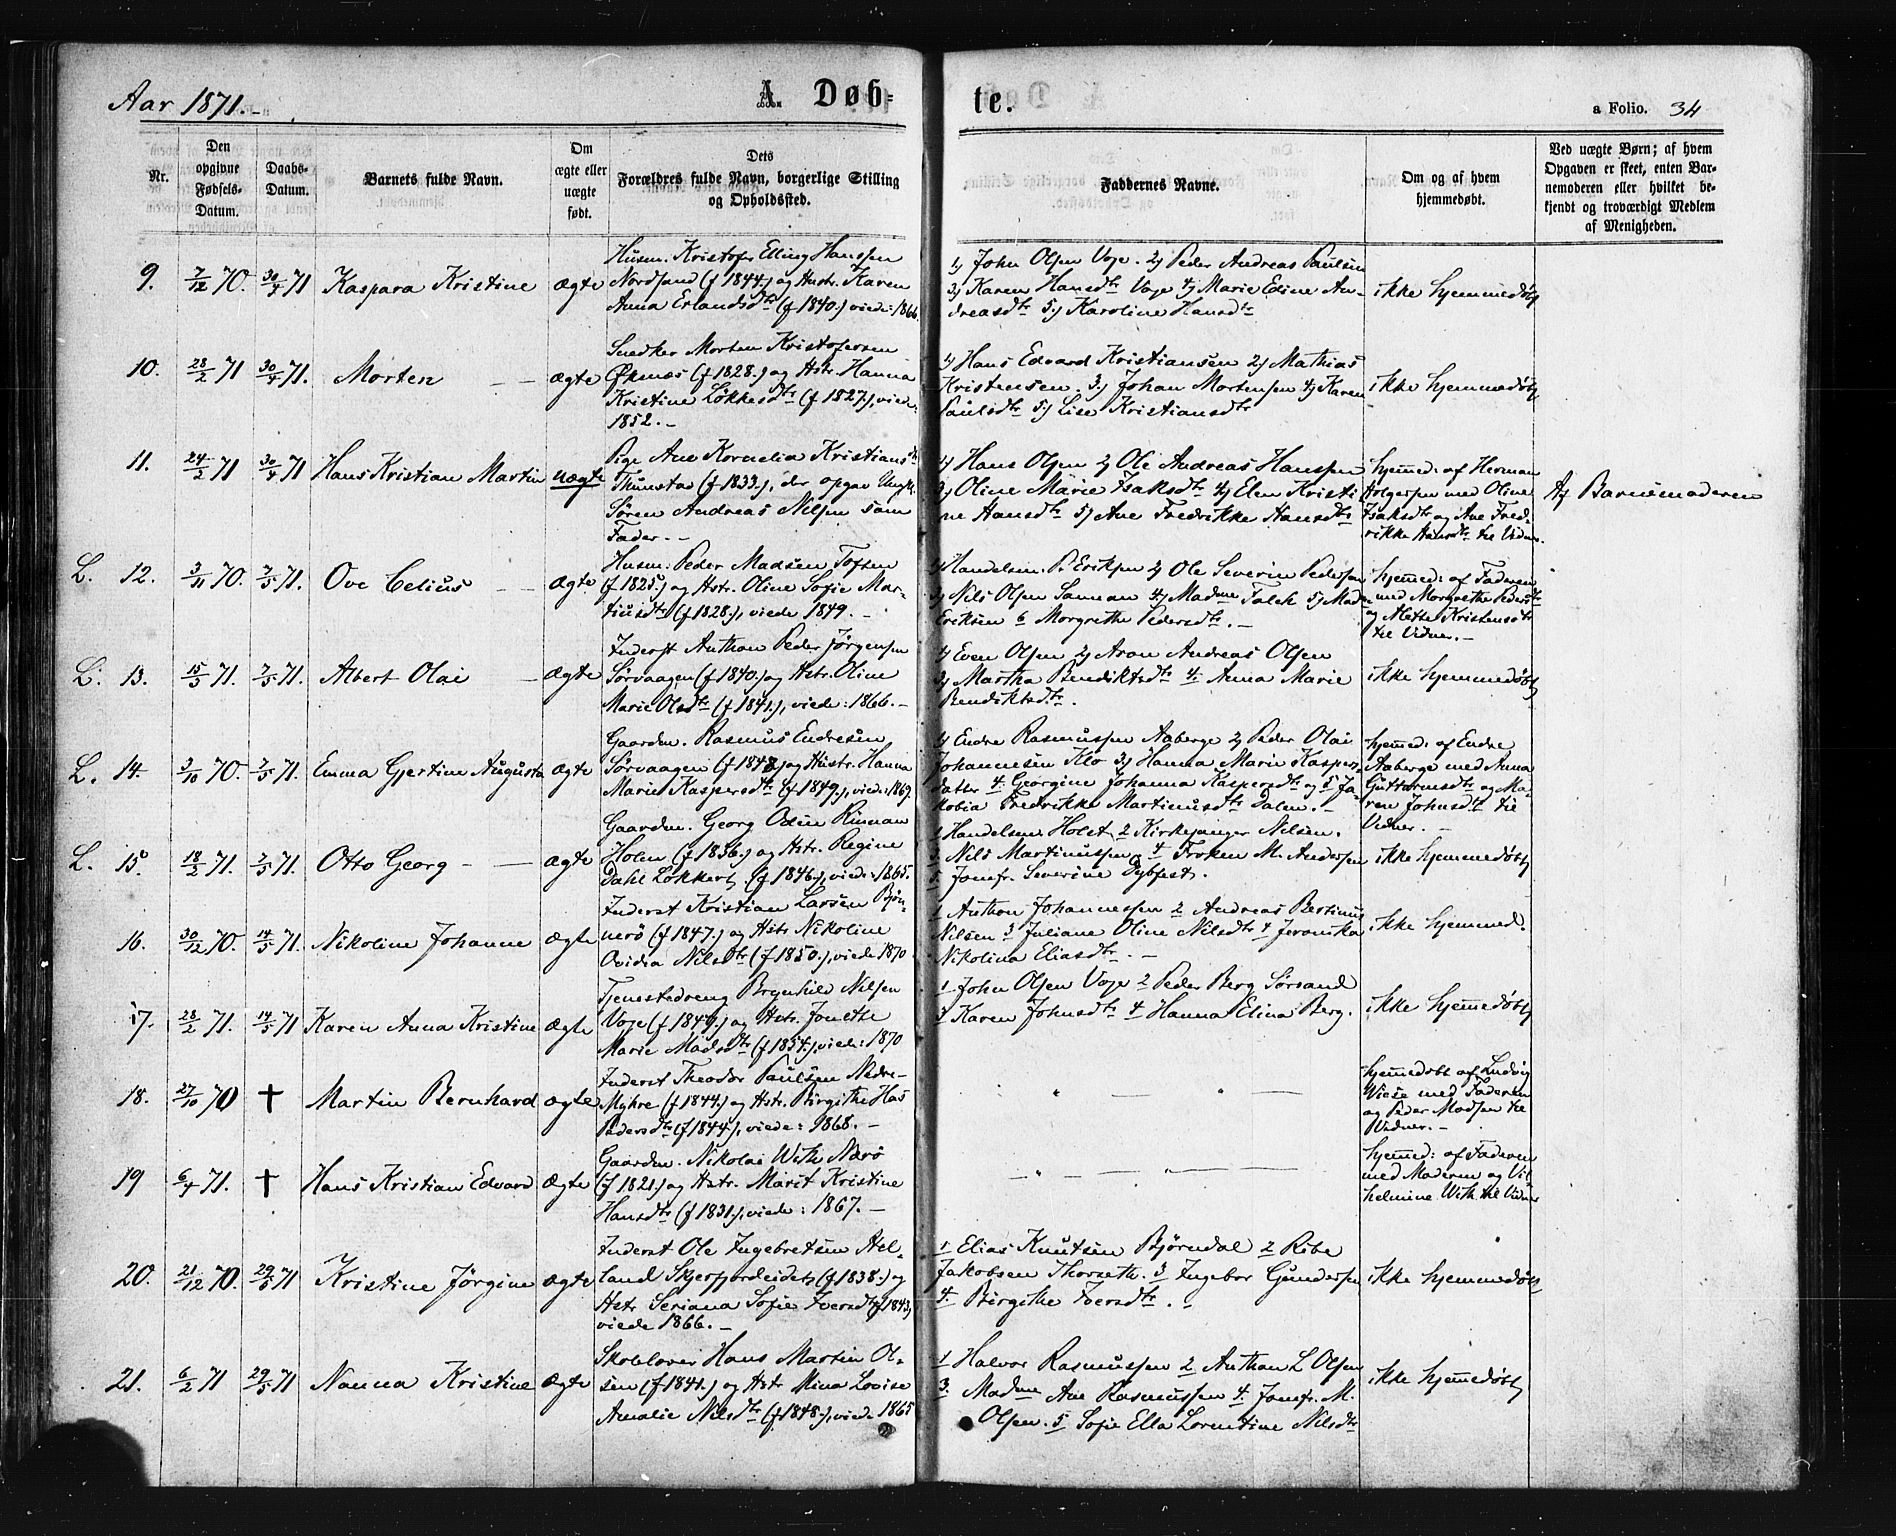 Aar 1871.
A Døb-
te.
a Folio. 34
Nr.
Den opgivne Fødsels-Datum.
Daabs-Datum.
Barnets fulde Navn.
Om ægte eller uægte født.
Dets Forældres fulde Navn, borgerlige Stilling og Opholdssted.
Faddernes Navne.
Om og af hvem hjemmedøbt.
Ved uægte Børn; af hvem Opgaven er skeet, enten Barnemoderen eller hvilket bekjendt og troværdigt Medlem af Menigheden.
9. 7/12 70. 30/4 71 Kaspara Kristine ægte
Husm. Kristofer Elling Hanssen
Nordsand (f 1844.) og Hustr. Karen
Anna Erlandsdtr (f 1840.) viede: 1866.
1) John Olsen Voje. 2) Peder Andreas Paulsen
3) Karen Hansdtr Voje 4) Marie Edine An-
dreasdtr 5) Karoline Hansdtr
ikke hjemmedøbt
10. 28/2 71 30/4 71. Morten ægte
Snedker Morten Kristofersen
Øksnæs (f 1828.) og Hstr. Hanna
Kristine Løkkesdtr (f 1827.), viede:
1852.
1) Hans Edvard Kristiansen 2) Mathias
Kristensen. 3) Johan Mortensen 4) Karen
Paulsdtr 5) Lise Kristiansdtr
ikke hjemmedøbt
11. 24/2 71 30/4 71 Hans Kristian Martin uægte
Pige Ane Kornelia Kristiansdtr
Thunstad (f 1833.), der opgav Ungk.
Søren Andreas Nilsen som
Fader.
1) Hans Olsen 2) Ole Andreas Hansen
3) Oline Marie Isaksdtr 4) Elen Kristi-
ne Hansdtr 5) Ane Fredrikke Hansdtr
hjemmed: af Herman
Holgersen med Oline
Isaksdtr og Ane Fred-
rikke Hansdtr til Vidner.
Af Barnemoderen
L. 12. 3/11 70. 7/5 71. Ove Celius ægte
Husm. Peder Madsen Toften
(f 1825.) og Hstr. Oline Sofie Mar-
tinsdtr (f 1828.), viede 1849.
1) Handelsm. P. Eriksen 2) Ole Severin Pedersen
3) Nils Olsen Sannan 4) Madme Falck 5) Madme
Eriksen 6 Morgrethe Pedersdtr.
hjemmed: af Faderen
med Morgrethe Pedersdtr
og Mette Kristensdtr
til Vidner.
L. 13. 15/3 71. 7/5 71. Albert Olai ægte
Inderst Anthon Peder Jørgensen
Sørvaagen (f 1840.) og Hstr. Oline
Marie Olsdtr (f 1841.), viede: 1866.
1) Even Olsen 2) Aron Andreas Olsen
3) Martha Bendiktsdtr 4. Anna Marie
Bendiktsdtr.
ikke hjemmedøbt
L. 14 3/10 70. 7/5 71. Emma Gjertine Augusta ægte
Gaardm. Rasmus Endresen
Sørvaagen (f 1848.) og Hustr. Hanna
Marie Kaspersdtr (f 1849.), viede: 1869.
1) Endre Rasmussen Aaberge 2) Peder Olai
Johannesen Klo 3) Hanna Marie Kaspers-
datter 4. Georgine Johanna Kaspersdtr og 5 Ja-
kobia Fredrikke Martinusdtr Dalen.
hjemmed: af Endre
Aaberge med Anna
Guttormsdtr og Ma-
ren Johnsdtr til
Vidner.
L. 15. 18/2 71. 7/5 71. Otto Georg ægte
Gaardm. Georg Odin Rinnan
Holen (f 1836.) og Hstr. Regine
Dahl Løkkert (f 1846.), viede: 1865.
1 Handelsm Holst 2 Kirkesanger Nilsen.
3. Nils Martinussen 4 Frøken M. Andersen
5. Jomfr. Severine Dybfest.
ikke hjemmedøbt
16. 30/12 70. 14/5 71. Nikoline Johanne ægte
Inderst Kristian Larsen Bjør-
nerø (f 1847.) og Hstr Nikoline
Ovidia Nilsdtr (f 1850.), viede 1870
1 Anthon Johannessen 2 Andreas Bertinus
Nilsen 3 Juliane Oline Nilsdtr 4 Jeronika
Nikolina Eliasdtr.
ikke hjemmed.
17. 28/2 71. 14/5 71 Karen Anna Kristine ægte
Tjenestedreng Brynhild Nilsen
Voje (f 1849.) og Hstr. Jonette
Marie Madsdtr (f 1854.), viede: 1870
1 John Olsen Voje 2 Peder Berg Sørsand
3 Karen Johnsdtr 4 Hanna Elina Berg.
ikke hjemmedøbt
18. 27/10 70 † Martin Bernhard ægte
Inderst Theodor Paulsen Nedre-
Myhre (f 1844.) og Hstr. Birgithe Has
Pedersdtr (f 1844.), viede: 1868.
" — " —
hjemmedøbt af Ludvig
Wiese med Faderen
og Peder Madsen til
Vidner.
19 6/4 71. † Hans Kristian Edvard ægte
Gaardm. Nikolai With Nærø
(f 1821.) og Hstr. Marit Kristine
Hansdtr (f 1831.), viede: 1867.
— " — " —
hjemmed: af Faderen
med Moderen og Vil-
helmine With til Vidner
20. 21/12 70. 29/5 71 Kristine Jørgine ægte
Inderst Ole Ingebretsen Hel-
land Skjerfjordeidet (f 1838.) og
Hstr Seriana Sofie Iversdtr (f 1843.)
viede 1866.
1 Elias Knutsen Bjørndal 2 Ribe
Jakobsen Thorseth. 3 Ingebor Gundersen
4. Birgithe Iversdtr.
ikke hjemmedøbt
21. 6/2 71 29/5 71 Nanna Kristine ægte
Skolelærer Hans Martin Ol-
sen (f 1841.) og Hstr Mina Lovise
Amalie Nilsdtr (f 1848.), viede 1865
1 Halvor Rasmussen 2 Anthon L Olsen
3. Madme Ane Rasmussen 4. Jomfr. M.
Olsen. 5 Sofie Ella Lorentine Nilsdtr
ikke hjemmedøbt